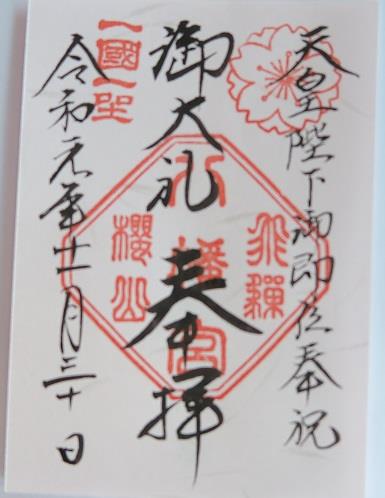 天皇陛下御即位奉祝
御大礼
奉拝
飛驒
八幡宮
櫻山
令和元年十一月三十日